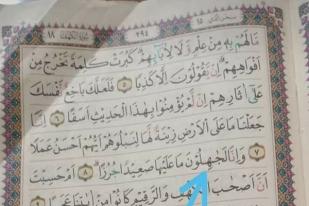 سورة الكهف ١٨ ٢٩٤ ١٥
مَّا لَهُم بِهِ مِنْ عِلْمٍ وَلَا لِآبَائِهِمْ كَبُرَتْ كَلِمَةً تَخْرُجُ مِنْ
أَفْوَاهِهِمْ إِن يَقُولُونَ إِلَّا كَذِبًا ٥ فَلَعَلَّكَ بَاخِعٌ نَّفْسَكَ
عَلَىٰ آثَارِهِمْ إِن لَّمْ يُؤْمِنُوا بِهَٰذَا الْحَدِيثِ أَسَفًا ٦ إِنَّا
جَعَلْنَا مَا عَلَى الْأَرْضِ زِينَةً لَّهَا لِنَبْلُوَهُمْ أَيُّهُمْ أَحْسَنُ عَمَلًا
٧ وَإِنَّا لَجَاعِلُونَ مَا عَلَيْهَا صَعِيدًا جُرُزًا ٨ أَمْ حَسِبْتَ
أَنَّ أَصْحَابَ الْكَهْفِ وَالرَّقِيمِ كَانُوا مِنْ آيَاتِنَا عَجَبًا